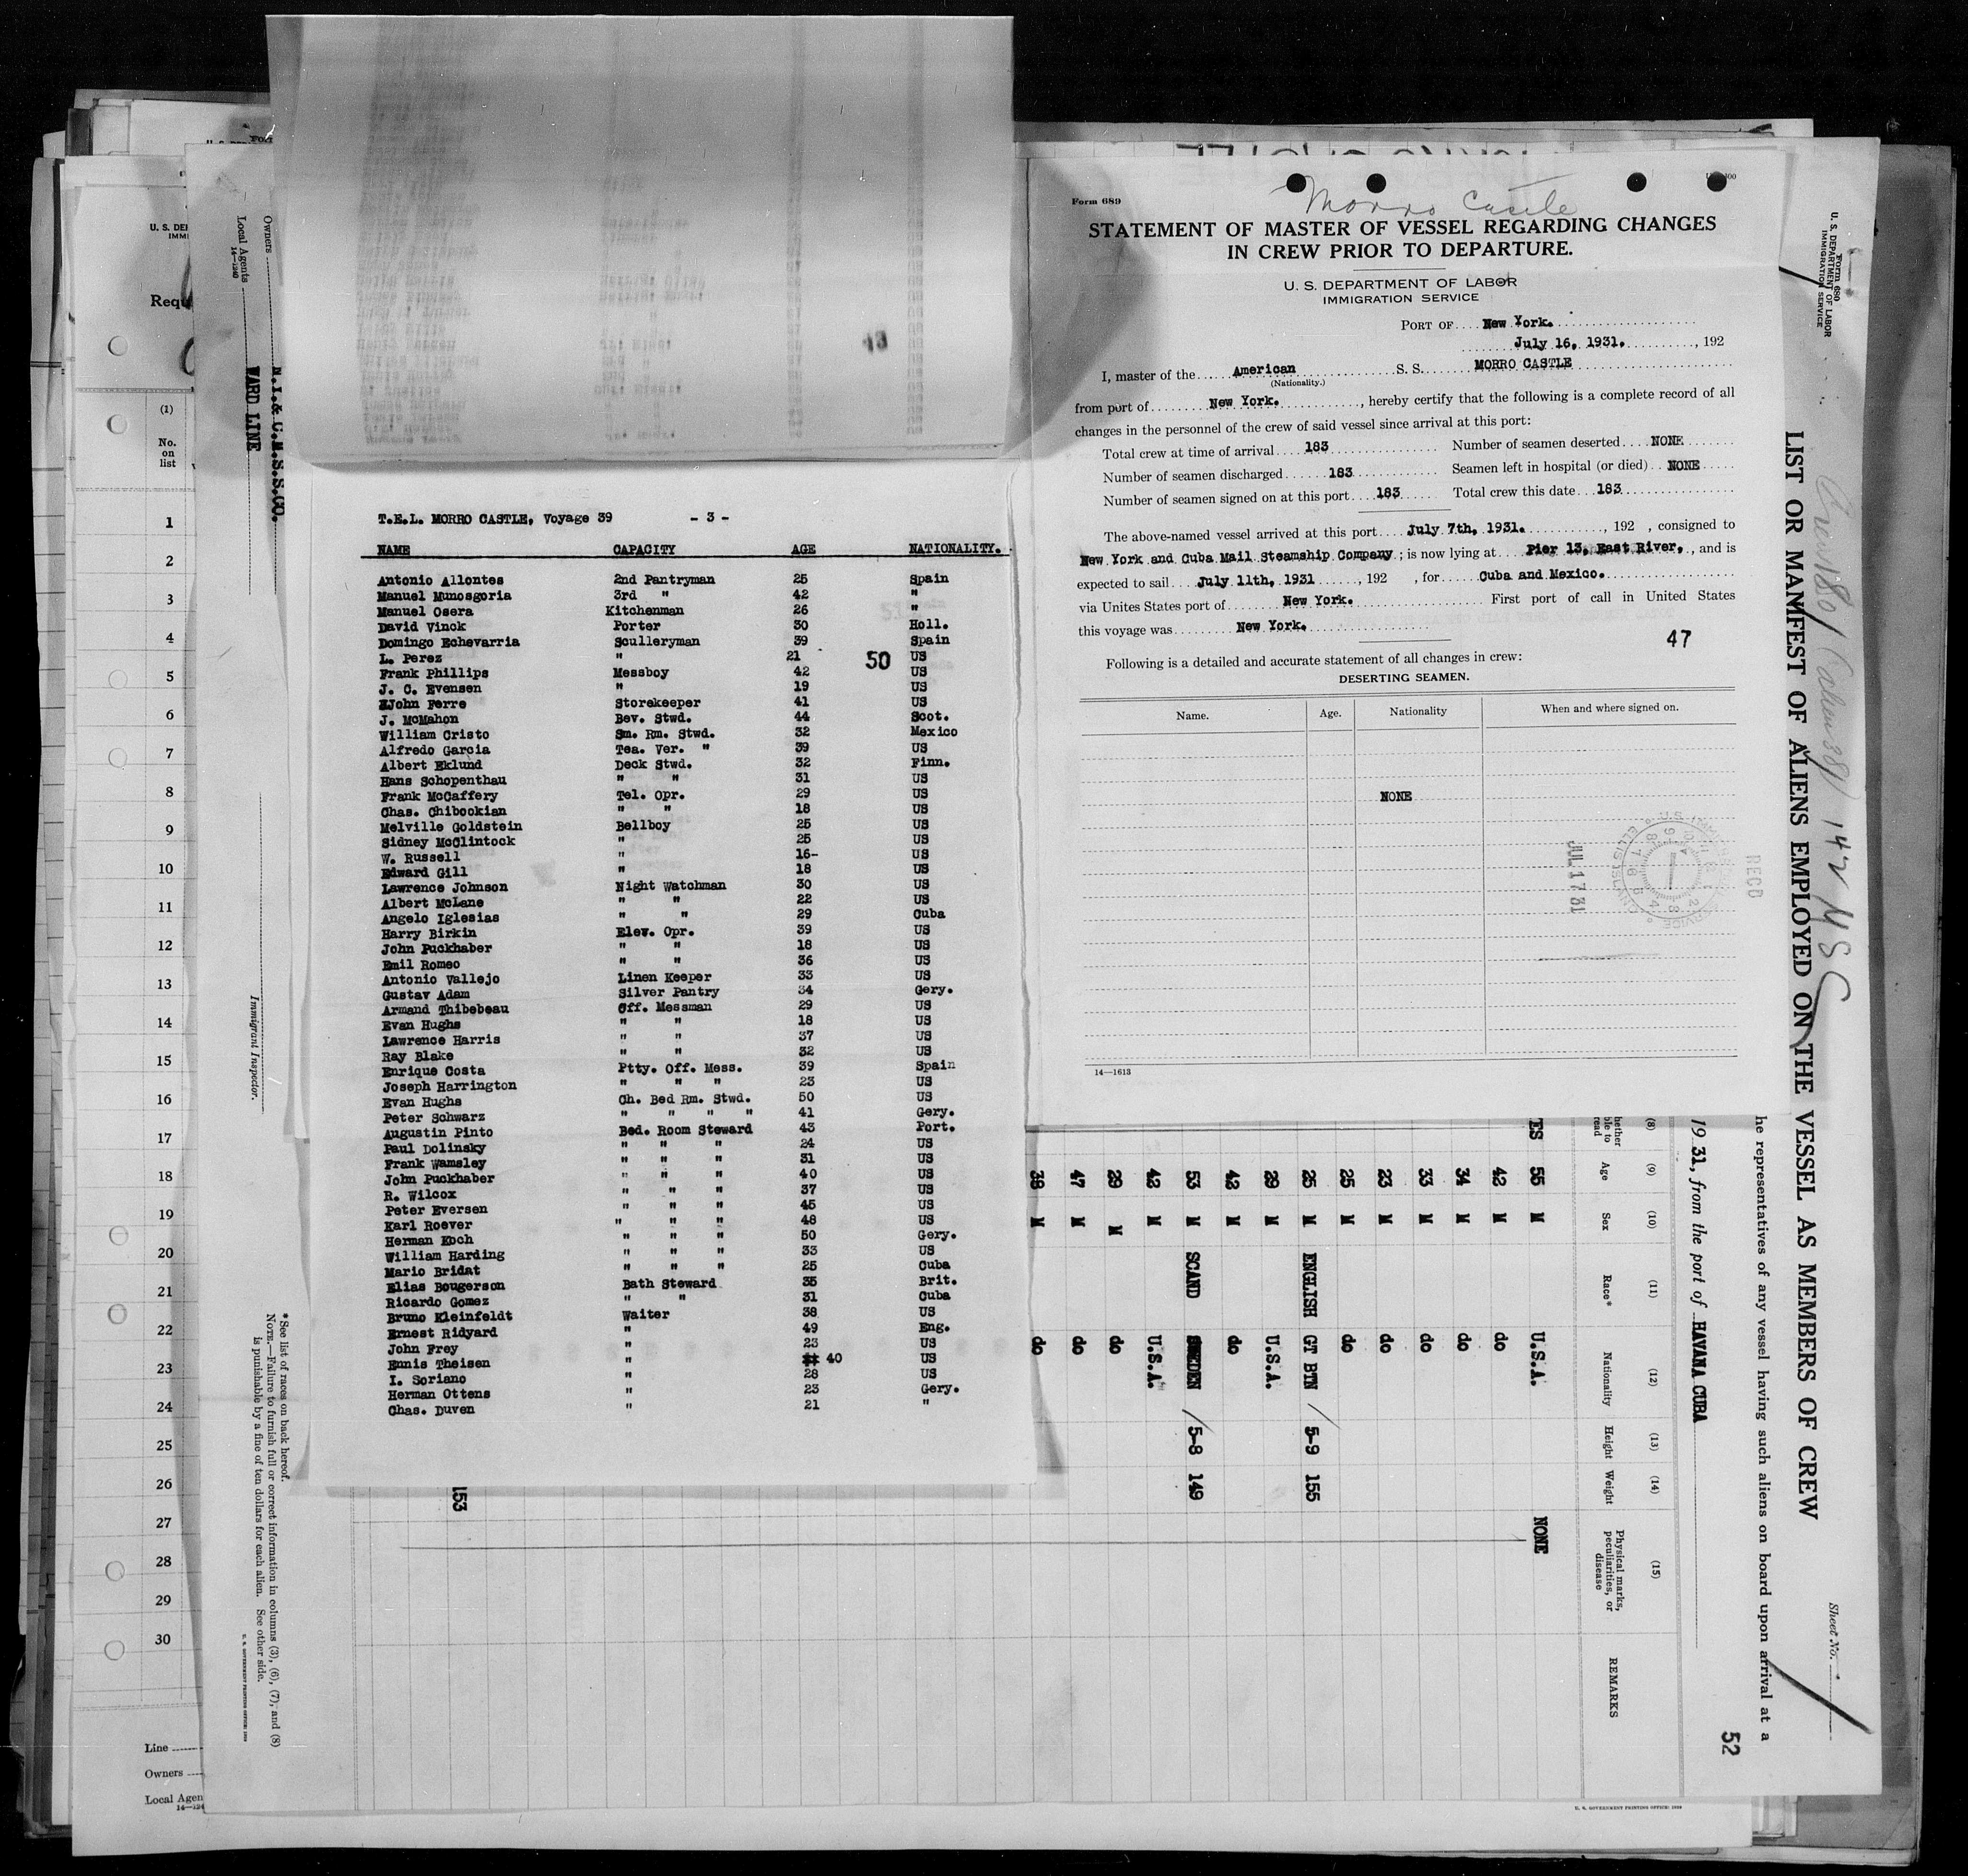 T.E.L. MORRO CASTLE, Voyage 39 - 3 -
NAME CAPACITY AGE NATIONALITY.
Antonio Allontes 2nd Pantryman 25 Spain
Manuel Munosgoria 3rd " 42 "
Manuel Osera Kitchenman 26 "
David Vinck Porter 30 Holl.
Domingo Echevarria Sculleryman 39 Spain
L. Perez " 21 US
50
Frank Phillips Messboy 42 US
J. C. Evensen " 19 US
John Ferre Storekeeper 41 US
J. McMahon Bev. Stwd. 44 Scot.
William Cristo Sm. Rm. Stwd. 32 Mexico
Alfredo Garcia Tea. Ver. " 39 US
Albert Eklund Deck Stwd. 32 Finn.
Hans Schopenthau " " 31 US
Frank McCaffery Tel. Opr. 29 US
Chas. Chibookian " " 18 US
Melville Goldstein Bellboy 25 US
Sidney McClintock " 25 US
W. Russell " 16- US
Edward Gill " 18 US
Lawrence Johnson Night Watchman 30 US
Albert McLane " " 22 US
Angelo Iglesias " " 29 Cuba
Harry Birkin Elev. Opr. 39 US
John Puckhaber " " 18 US
Emil Romeo " " 36 US
Antonio Vallejo Linen Keeper 33 US
Gustav Adam Silver Pantry 34 Gery.
Armand Thibebeau Off. Messman 29 US
Evan Hughs " " 18 US
Lawrence Harris " " 37 US
Ray Blake " " 32 US
Enrique Costa Ptty. Off. Mess. 39 Spain
Joseph Harrington " " " 23 US
Evan Hughs Ch. Bed Rm. Stwd. 50 US
Peter Schwarz " " " " 41 Gery.
Augustin Pinto Bed. Room Steward 43 Port.
Paul Dolinsky " " " 24 US
Frank Wamsley " " " 31 US
John Puckhaber " " " 40 US
R. Wilcox " " " 37 US
Peter Eversen " " " 45 US
Karl Roever " " " 48 US
Herman Koch " " " 50 Gery.
William Harding " " " 33 US
Mario Bridat " " " 25 Cuba
Elias Bougerson Bath Steward 35 Brit.
Ricardo Gomez " " 31 Cuba
Bruno Kleinfeldt Waiter 38 US
Ernest Ridyard " 49 Eng.
John Frey " 23 US
Ennis Theisen " 40 US
I. Soriano " 28 US
Herman Ottens " 23 Gery.
Chas. Duven " 21 "
Form 689
Morro Castle
STATEMENT OF MASTER OF VESSEL REGARDING CHANGES
IN CREW PRIOR TO DEPARTURE.
U. S. DEPARTMENT OF LABOR
IMMIGRATION SERVICE
PORT OF New York.
July 16, 1931. , 192
I, master of the American S. S. MORRO CASTLE
(Nationality.)
from port of New York. , hereby certify that the following is a complete record of all
changes in the personnel of the crew of said vessel since arrival at this port:
Total crew at time of arrival 183 Number of seamen deserted NONE
Number of seamen discharged 183 Seamen left in hospital (or died) NONE
Number of seamen signed on at this port 183 Total crew this date 183
The above-named vessel arrived at this port July 7th, 1931. , 192 , consigned to
New York and Cuba Mail Steamship Company ; is now lying at Pier 13, East River, , and is
expected to sail July 11th, 1931 , 192 , for Cuba and Mexico.
via Unites States port of New York. First port of call in United States
this voyage was New York.
47
Following is a detailed and accurate statement of all changes in crew:
DESERTING SEAMEN.
Name. Age. Nationality When and where signed on.
NONE
JUL 17 31
RECD
14—1613
Form 680
U. S. DEPARTMENT OF LABOR
IMMIGRATION SERVICE
LIST OR MANIFEST OF ALIENS EMPLOYED ON THE VESSEL AS MEMBERS OF CREW
Sheet No.
he representatives of any vessel having such aliens on board upon arrival at a
1931, from the port of HAVANA CUBA
52
(8) (9) (10) (11) (12) (13) (14) (15)
Age Sex Race* Nationality Height Weight Physical marks, peculiarities, or disease REMARKS
55 M U.S.A. NONE
42 M do
34 M do
33 M do
23 M do
25 M do
25 M ENGLISH GT BTN 5-9 155
29 M U.S.A.
42 M do
53 M SCAND SWEDEN 5-8 149
42 M U.S.A.
29 M do
47 M do
38 M do
153
U. S. GOVERNMENT PRINTING OFFICE: 1929
Owners N.Y.& C.M.S.S.CO.
Local Agents WARD LINE
14—1240
Immigrant Inspector.
*See list of races on back hereof.
NOTE.—Failure to furnish full or correct information in columns (3), (6), (7), and (8)
is punishable by a fine of ten dollars for each alien. See other side.
(1)
No.
on
list
1
2
3
4
5
6
7
8
9
10
11
12
13
14
15
16
17
18
19
20
21
22
23
24
25
26
27
28
29
30
Line
Owners
Local Agen